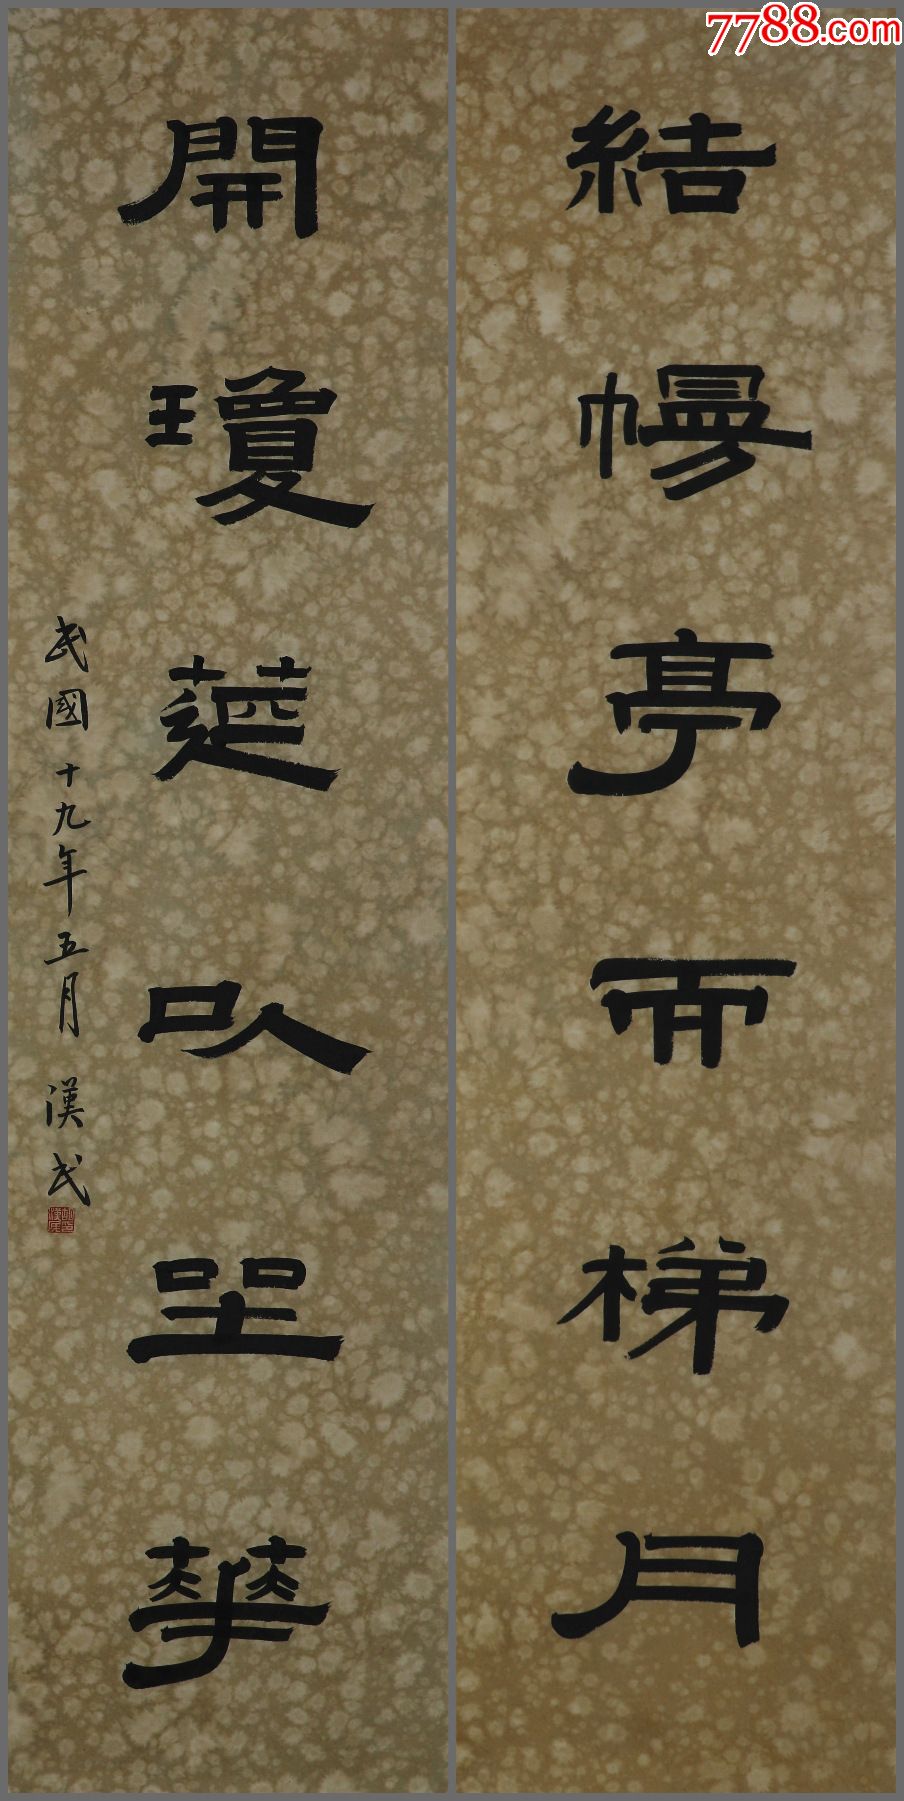 7788.com
結幔亭而梯月
開瓊莚㕥坐華
民國十九年五月 漢民